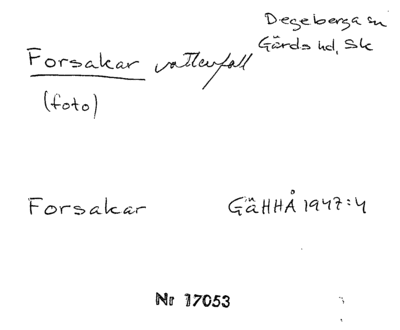 Degeberga sn
Gärds hd, Sk
Forsakar vattenfall
(foto)
Forsakar GäHHÅ 1947:4
Nr 17053